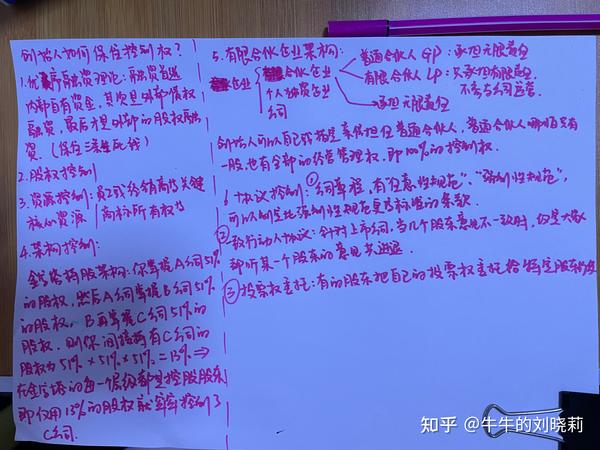 创始人如何保住控制权?
1.优序融资理论:融资首选
内部自有资金,其次是外部债权
融资,最后才是外部的股权融
资。(保住法生死线)
2.股权控制
3.资源控制:员工或经销商等关键
核心资源/商标所有权等
4.架构控制:
金字塔持股架构:你掌握A公司51%
的股权,然后A公司掌握B公司51%
的股权,B再掌握C公司51%的
股权,则你间接拥有C公司的
股权为51%×51%×51%=13%⇒
在金字塔的每一层级都是控股股东
即仅用13%的股权就牢牢控制了
C公司.
5.有限合伙企业架构:
企业
合伙企业
个人独资企业
公司
普通合伙人GP:承担无限责任
有限合伙人LP:只承担有限责任.
不参与公司运营.
承担无限责任
创始人可以自己或指定亲信担任普通合伙人,普通合伙人哪怕只有
一股,也有全部的经营管理权,即100%的控制权.
6.协议控制:①公司章程,有"任意性规范","强制性规范",
可以制定比强制性规范更高标准的条款.
②一致行动人协议:针对上市公司,当几个股东意见不一致时,但是大家
都听某一个股东的意见共进退.
③投票权委托:有的股东把自己的投票权委托给特定股东
知乎 @牛牛的刘晓莉